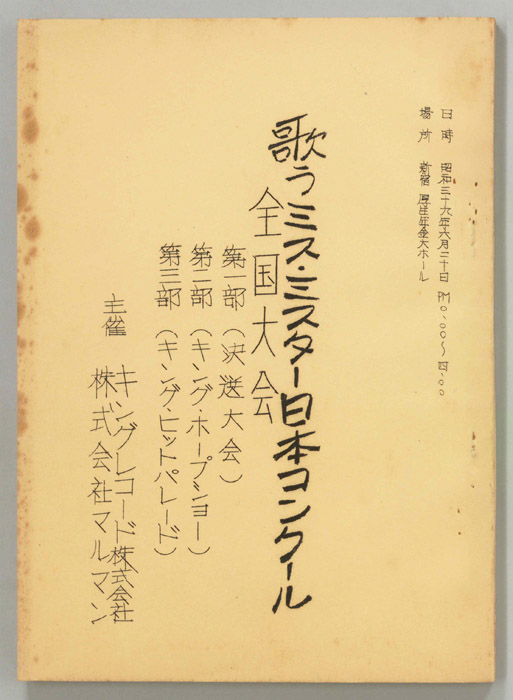 日時　昭和三十九年六月二十日　PM0.00〜四.00
場所　新宿厚生年金大ホール
歌うミス・ミスター日本コンクール
全国大会
第一部（決送大会）
第二部（キング・ホープショー）
第三部（キング・ヒットパレード）
主催　キングレコード株式会社
株式会社マルマン